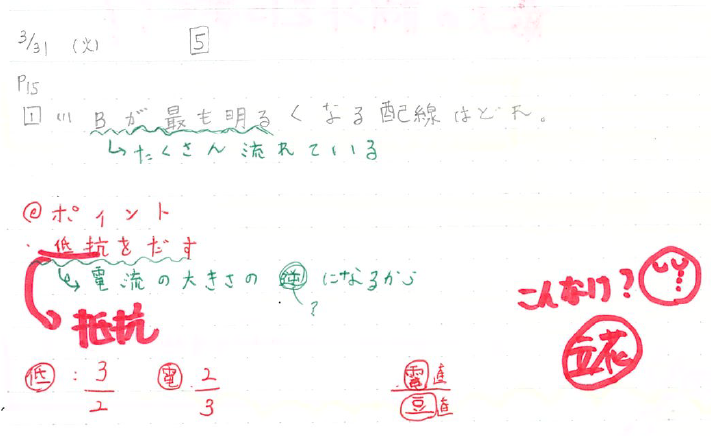 3/31 (火) 5
P15
1 (1) Bが最も明るくなる配線はどれ。
↳たくさん流れている
@ポイント
・低抗をだす
↳電流の大きさの逆になるから
?
こんなけ?
抵抗
立花
低 : 3/2 電 2/3
電直
豆直